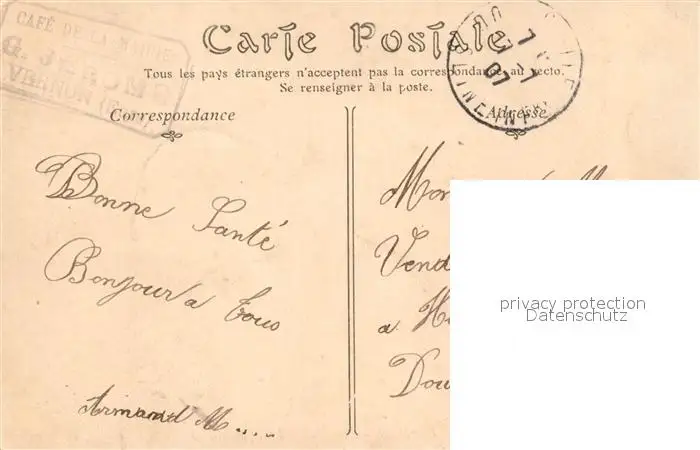 CAFÉ DE LA MAIRIE
G. JEROME
VERNON
Carte Postale
Tous les pays étrangers n'acceptent pas la correspondance au recto.
Se renseigner à la poste.
Correspondance
Adresse
Bonne Santé
Bonjour a tous
Armand M....
Vend
a H
Dou
privacy protection
Datenschutz